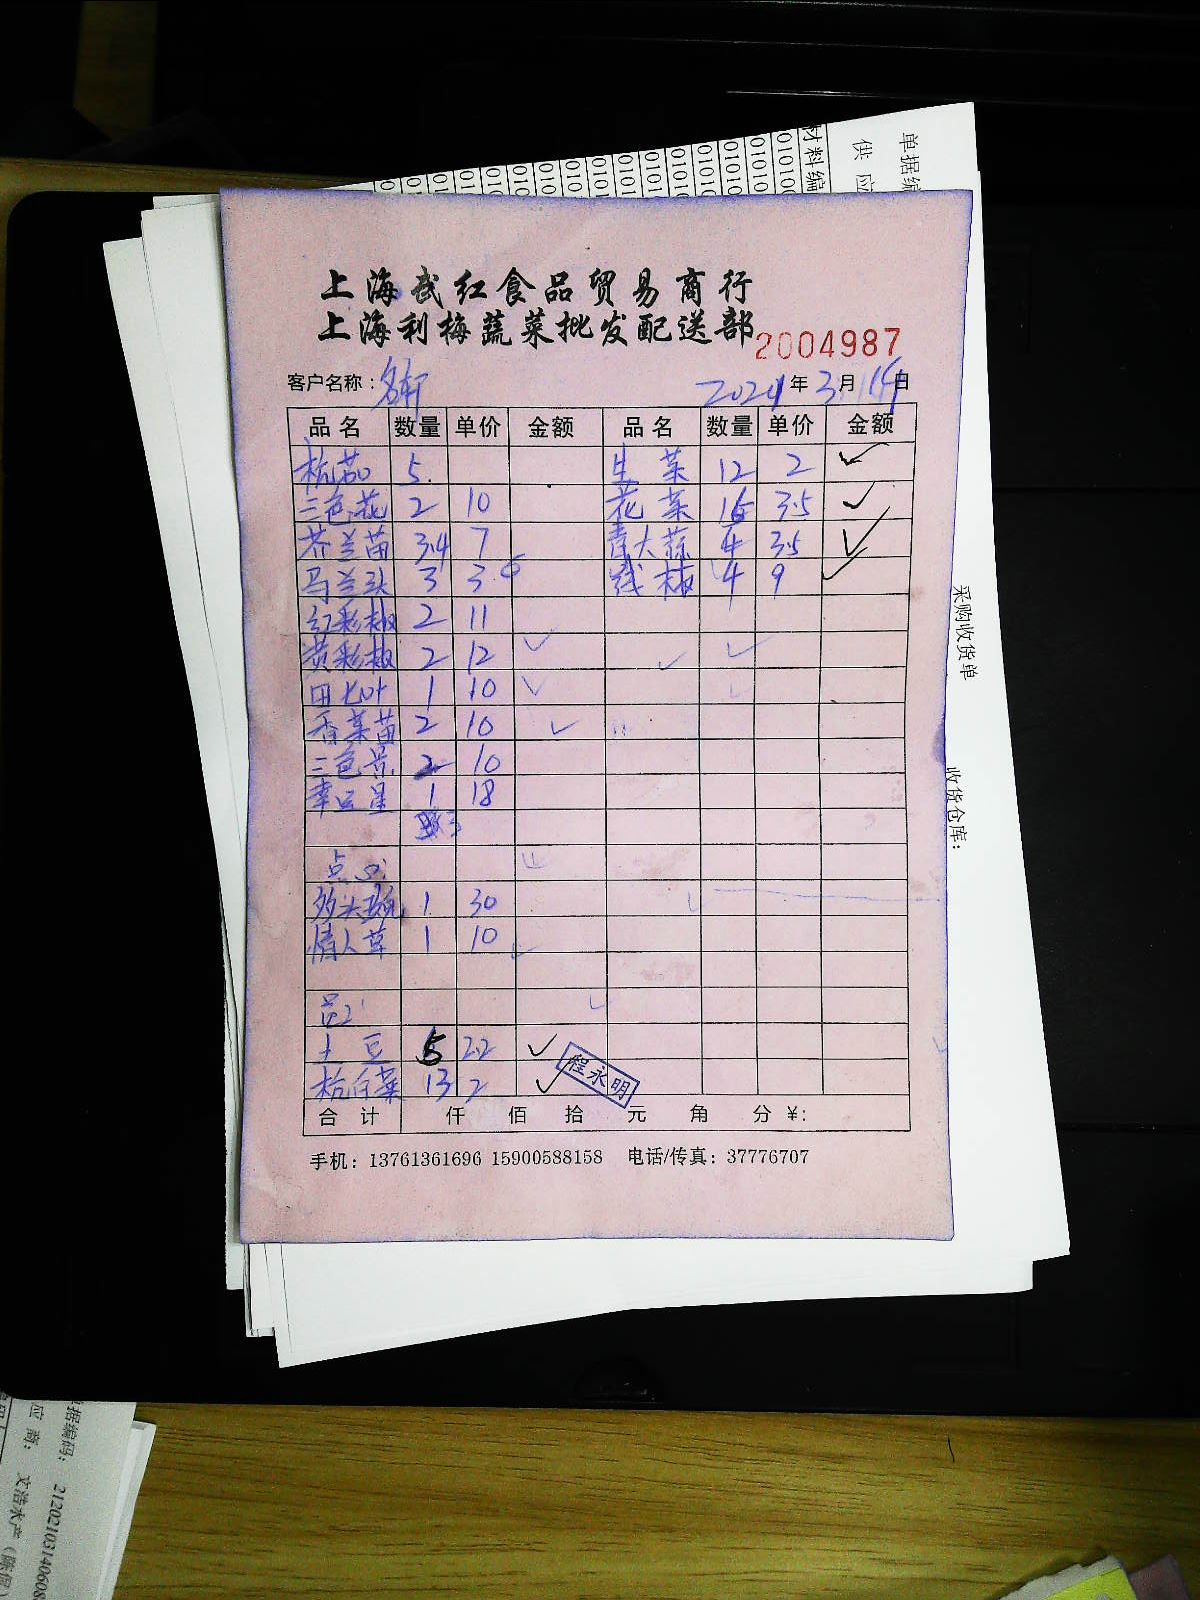 单据编
供应
材料编
上海武红食品贸易商行
上海利梅蔬菜批发配送部
2004987
客户名称: 名轩 2021年3月14日
品名 数量 单价 金额 品名 数量 单价 金额
杭茄 5 生菜 12 2
三色花 2 10 花菜 16 3.5
芥兰苗 3.4 7 青大蒜 4 3.5
马兰头 3 3.5 线椒 4 9
红彩椒 2 11
黄彩椒 2 12
田七叶 1 10
香菜苗 2 10
三色堇 2 10
幸运星 1 18
点心
多头玫 1 30
情人草 1 10
员工
土豆 5 2.2
杭白菜 13 2
程永明
合计 仟 佰 拾 元 角 分 ¥:
手机: 13761361696 15900588158 电话/传真: 37776707
采购收货单
收货仓库:
单据编码: 2120210314060
应商: 文浩水产